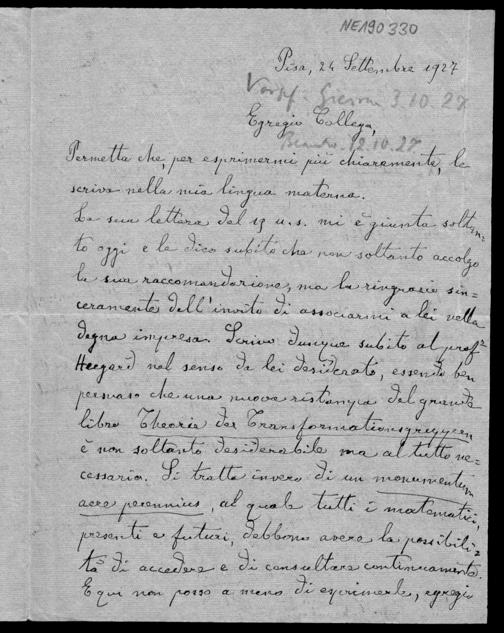 NE190330
Pisa, 24 Settembre 1927
3.10.27
Egregio Collega,
12.10.27
Permetta che, per esprimermi più chiaramente, le
scriva nella mia lingua materna.
La sua lettera del 19 u.s. mi è giunta soltan=
to oggi e le dico subito che non soltanto accolgo
la sua raccomandazione, ma la ringrazio sin=
ceramente dell'invito di associarmi a lei nella
degna impresa. Scrivo dunque subito al prof.r
Heegard nel senso da lei desiderato, essendo ben
persuaso che una nuova ristampa del grande
libro Theorie der Transformationsgruppen
è non soltanto desiderabile ma al tutto ne=
cessaria. Si tratta invero di un monumentum
aere perennius, al quale tutti i matematici,
presenti e futuri, debbono avere la possibili=
tà di accedere e di consultare continuamente.
E qui non posso a meno di esprimerle, egregio